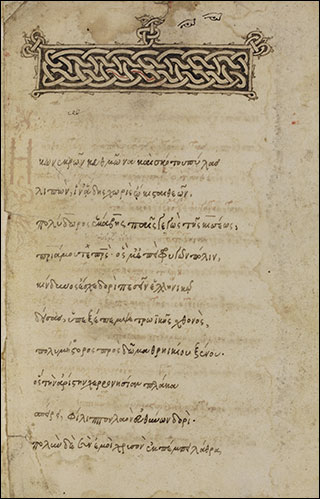 κω νεκρῶν κευθμῶνα καὶ σκότου πύλας
λιπὼν, ἵν' ἅδης χωρὶς ὤκισται θεῶν,
πολύδωρος ἑκάβης παῖς γεγὼς τῆς κισσέως,
πριάμου τε πατρὸς· ὅς μ' ἐπεὶ φρυγῶν πόλιν,
κίνδυνος ἔσχε δορὶ πεσεῖν ἑλληνικῶ
δείσας, ὑπεξέπεμψε τρωϊκῆς χθονὸς,
πολυμήστορος πρὸς δῶμα θρηκίου ξένου·
ὃς τὴν ἀρίστην χερσονησίαν πλάκα
σπείρει, φίλιππον λαὸν εὐθύνων δορί·
πολὺν δὲ σὺν ἐμοὶ χρυσὸν ἐκπέμπει λάθρα,